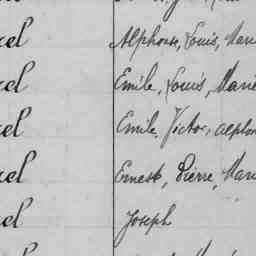 el Alphonse, Louis, Mari
el Emile, Louis, Marie
el Emile, Victor, Alphon
el Ernest, Pierre, Mari
el Joseph